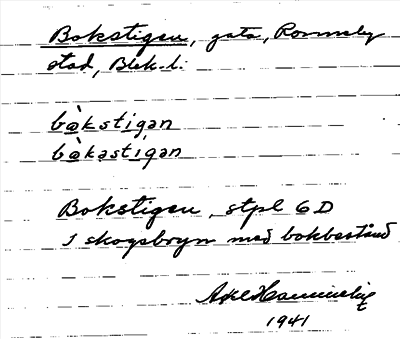 Bokstigen, gata, Ronneby
stad, Blek. l.
bò̱kstigan
bò̱kastigan
Bokstigen, stpl 6D
I skogsbryn med bokbestånd
Axel
1941